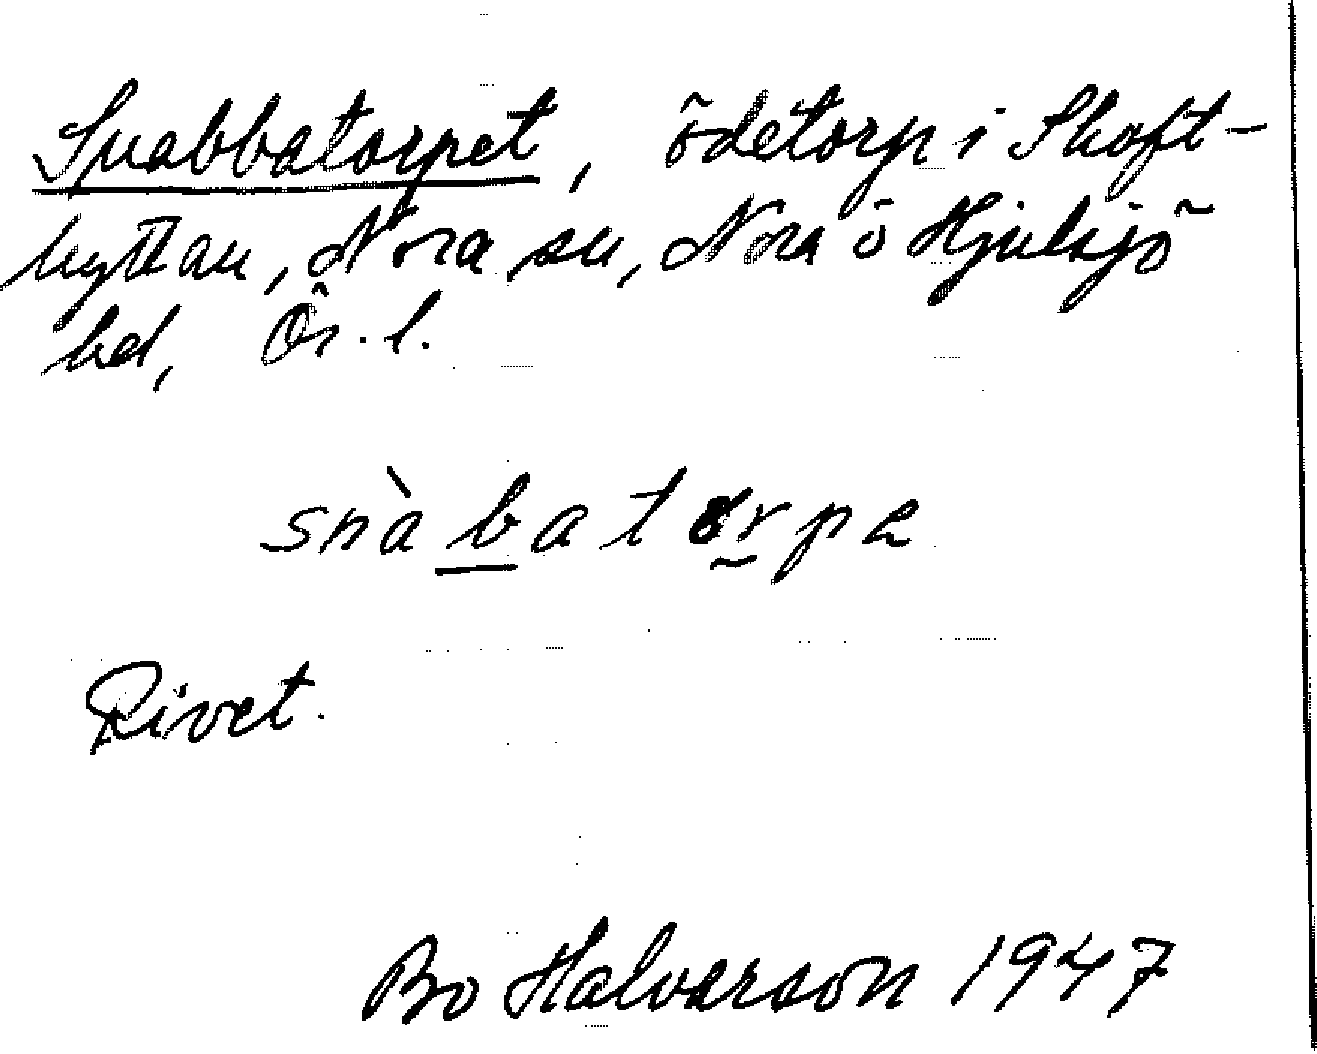 Snabbatorpet, ödetorp i Skoft-
hyttan, Nora sn, Nora o Hjulsjö
bd, Ör. l.
snàbatorpe
Rivet.
Bo Halvarson 1947